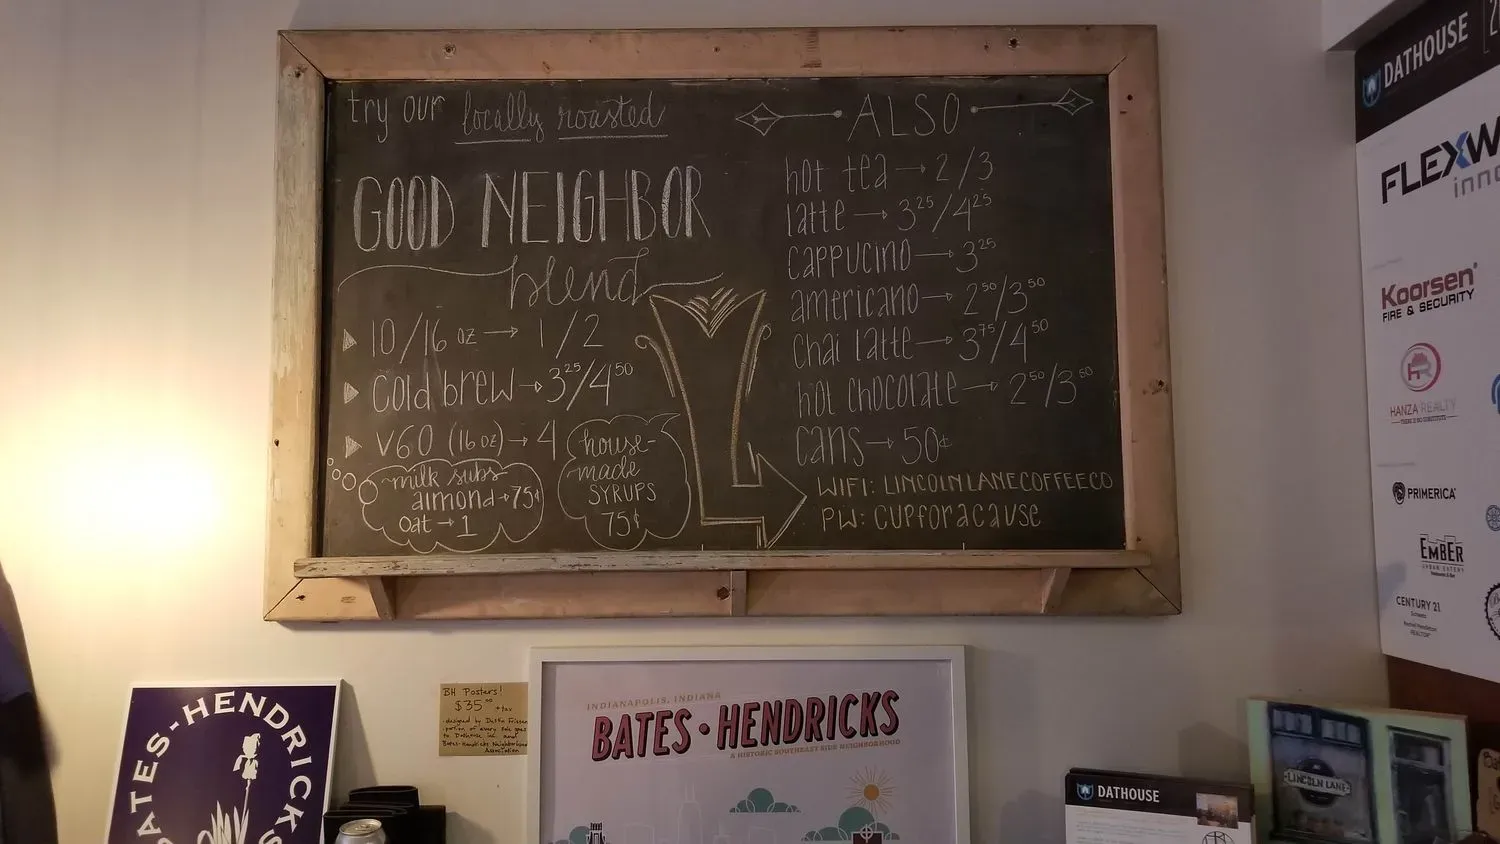 try our locally roasted
GOOD NEIGHBOR
blend
10/16 oz → 1/2
cold brew → 3²⁵/4⁵⁰
V60 (16 oz) → 4
milk subs
almond → 75¢
oat → 1
house-
made
SYRUPS
75¢
ALSO
hot tea → 2/3
latte → 3²⁵/4²⁵
cappucino → 3²⁵
americano → 2⁵⁰/3⁵⁰
chai latte → 3⁷⁵/4⁵⁰
hot chocolate → 2⁵⁰/3⁵⁰
cans → 50¢
WIFI: LINCOLNLANECOFFEECO
PW: cupforacause
DATHOUSE
FLEXW
inno
Koorsen
FIRE & SECURITY
HANZA REALTY
PRIMERICA
EMBER
URBAN EATERY
CENTURY 21
Scheetz
REALTOR
BATES-HENDRICKS
BH Posters!
$35⁰⁰ +tax
designed by Dustin
portion of every sale goes
to Dathouse and
Bates-Hendricks Neighborhood
Association
INDIANAPOLIS, INDIANA
BATES • HENDRICKS
A HISTORIC SOUTHEAST SIDE NEIGHBORHOOD
DATHOUSE
LINCOLN LANE